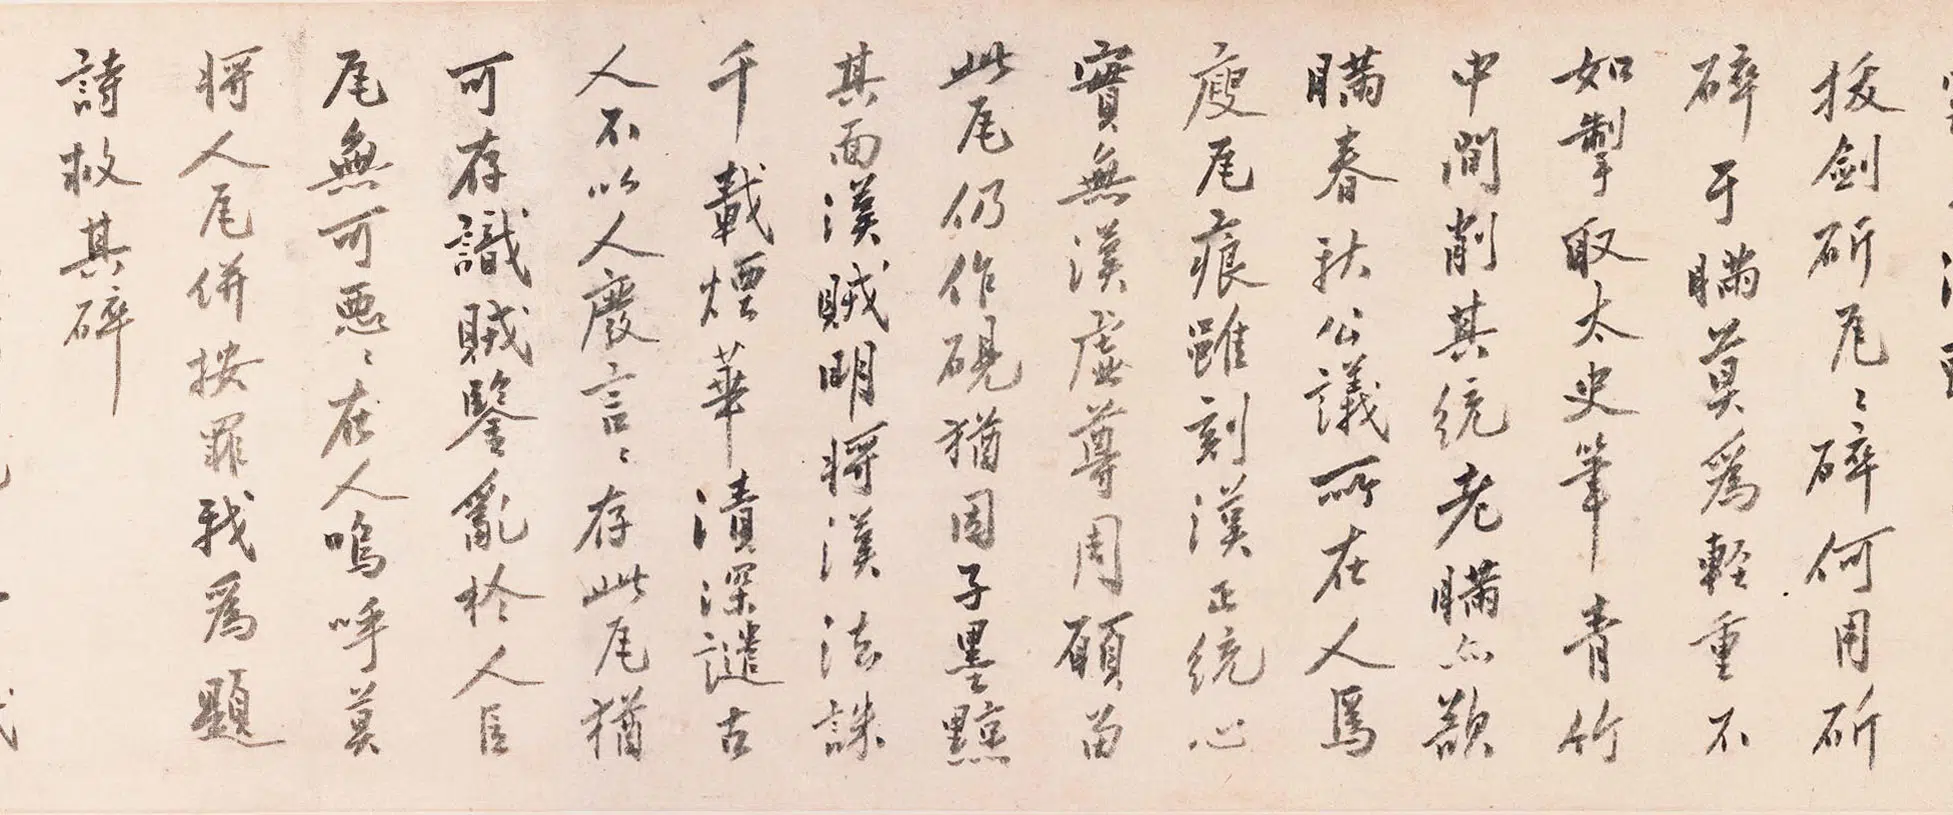 拔劍斫瓦〻碎何用斫
碎于瞞莫為輕重不
如掣取太史筆青竹
中間削其統老瞞亦
瞞春秋公議所在人焉
廋瓦痕雖刻漢正統心
實無漢虛尊周願留
此瓦仍作硯猶因子墨黥
其面漢賊明將漢法誅
千載煙華漬深譴古
人不以人廢言〻存此瓦猶
可存識賊鑒亂於人臣
瓦無可惡〻在人嗚呼莫
將人瓦併按罪我為題
詩救其碎